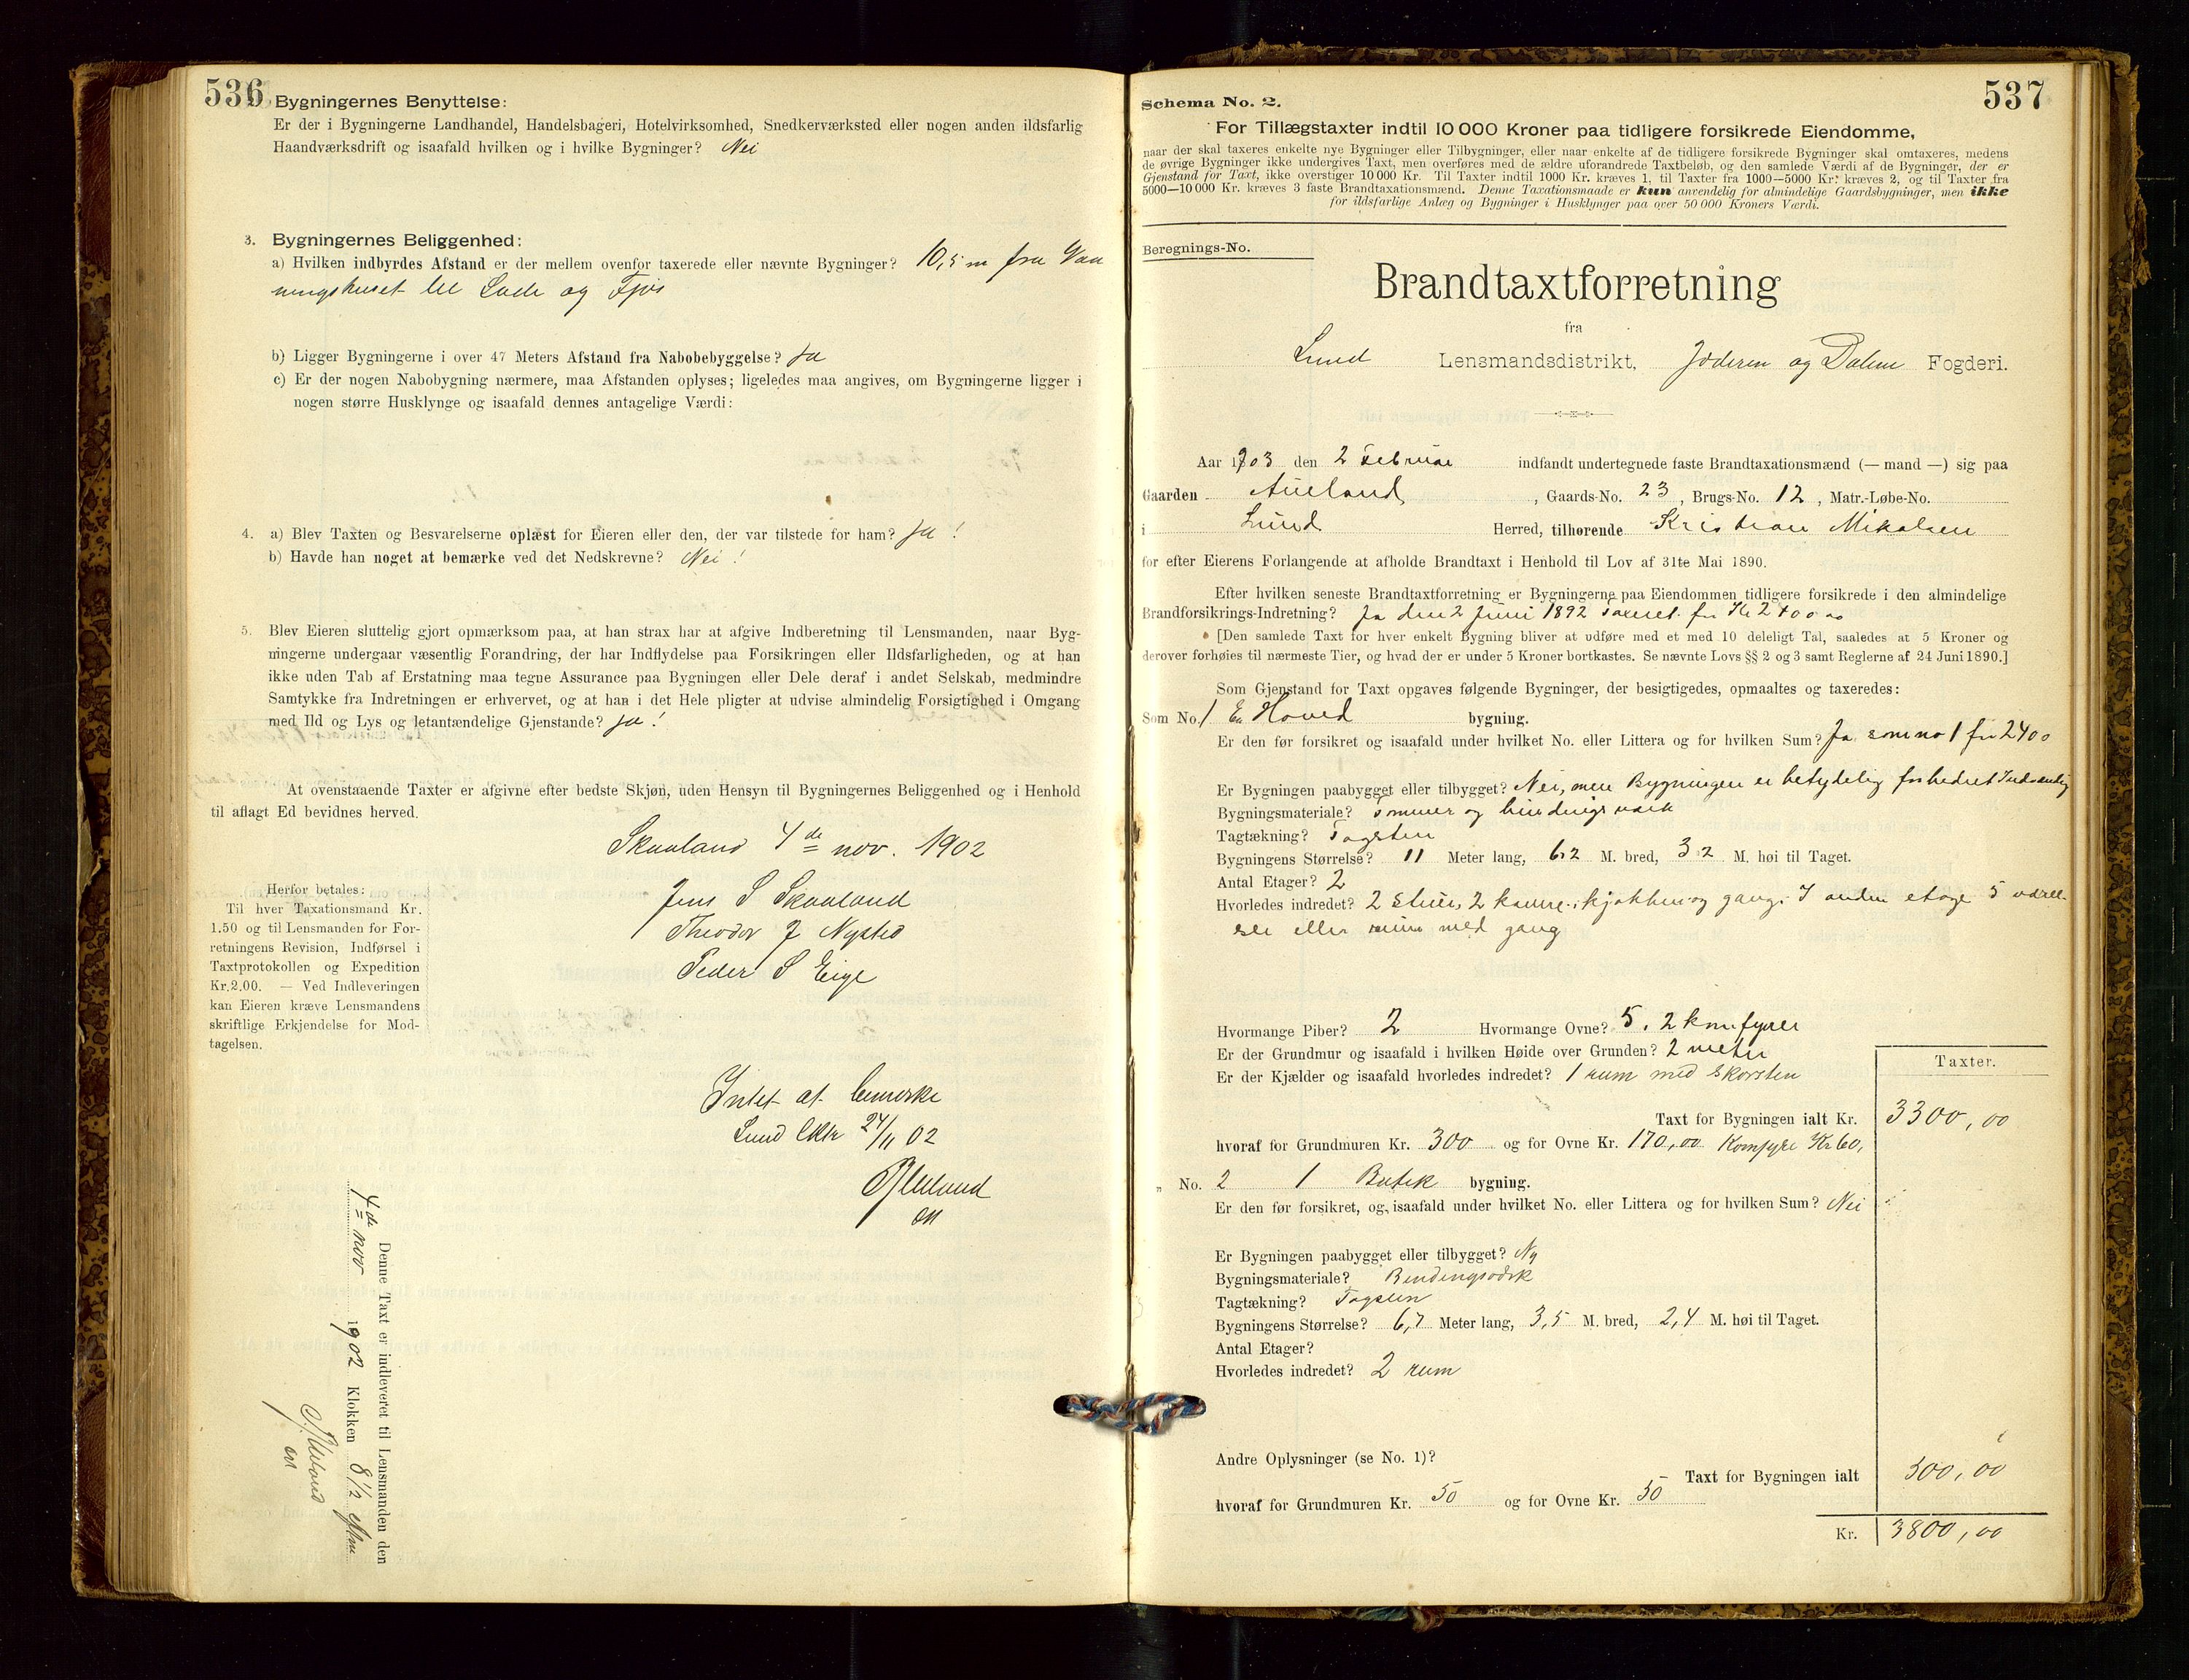 536
Bygningernes Benyttelse:
Er der i Bygningerne Landhandel, Handelsbageri, Hotelvirksomhed, Snedkerværksted eller nogen anden ildsfarlig
Haandværksdrift og isaafald hvilken og i hvilke Bygninger? Nei
3. Bygningernes Beliggenhed:
a) Hvilken indbyrdes Afstand er der mellem ovenfor taxerede eller nævnte Bygninger? 10,5 m fra Vaa
ningshuset til Lade og Fjøs
b) Ligger Bygningerne i over 47 Meters Afstand fra Nabobebyggelse? Ja
c) Er der nogen Nabobygning nærmere, maa Afstanden oplyses; ligeledes maa angives, om Bygningerne ligger i
nogen større Husklynge og isaafald dennes antagelige Værdi:
4. a) Blev Taxten og Besvarelserne oplæst for Eieren eller den, der var tilstede for ham? Ja!
b) Havde han noget at bemærke ved det Nedskrevne? Nei!
5. Blev Eieren sluttelig gjort opmærksom paa, at han strax har at afgive Indberetning til Lensmanden, naar Byg-
ningerne undergaar væsentlig Forandring, der har Indflydelse paa Forsikringen eller Ildsfarligheden, og at han
ikke uden Tab af Erstatning maa tegne Assurance paa Bygningen eller Dele deraf i andet Selskab, medmindre
Samtykke fra Indretningen er erhvervet, og at han i det Hele pligter at udvise almindelig Forsigtighed i Omgang
med Ild og Lys og letantændelige Gjenstande? Ja!
At ovenstaaende Taxter er afgivne efter bedste Skjøn, uden Hensyn til Bygningernes Beliggenhed og i Henhold
til aflagt Ed bevidnes herved.
Skaaland 4de nov. 1902
Jens S Skaaland
Theodor J Nysted
Peder S Eige
Herfor betales:
Til hver Taxationsmand Kr.
1.50 og til Lensmanden for For-
retningens Revision, Indførsel i
Taxtprotokollen og Expedition
Kr. 2.00. — Ved Indleveringen
kan Eieren kræve Lensmandens
skriftlige Erkjendelse for Mod-
tagelsen.
Intet at bemerke
Lund 24/11 02
Denne Taxt er indleveret til Lensmanden den
4de nov 1902 Klokken 8 1/2 eftm
537
Schema No. 2.
For Tillægstaxter indtil 10 000 Kroner paa tidligere forsikrede Eiendomme,
naar der skal taxeres enkelte nye Bygninger eller Tilbygninger, eller naar enkelte af de tidligere forsikrede Bygninger skal omtaxeres, medens
de øvrige Bygninger ikke undergives Taxt, men overføres med de ældre uforandrede Taxtbeløb, og den samlede Værdi af de Bygninger, der er
Gjenstand for Taxt, ikke overstiger 10 000 Kr. Til Taxter indtil 1000 Kr. kræves 1, til Taxter fra 1000—5000 Kr. kræves 2, og til Taxter fra
5000—10 000 Kr. kræves 3 faste Brandtaxationsmænd. Denne Taxationsmaade er kun anvendelig for almindelige Gaardsbygninger, men ikke
for ildsfarlige Anlæg og Bygninger i Husklynger paa over 50 000 Kroners Værdi.
Beregnings-No.
Brandtaxtforretning
fra
Lund Lensmandsdistrikt, Jæderen og Dalene Fogderi.
Aar 1903 den 2 Februar indfandt undertegnede faste Brandtaxationsmænd (— mand —) sig paa
Gaarden Aueland, Gaards-No. 23, Brugs-No. 12, Matr.-Løbe-No.
i Lund Herred, tilhørende Kristian Mikalsen
for efter Eierens Forlangende at afholde Brandtaxt i Henhold til Lov af 31te Mai 1890.
Efter hvilken seneste Brandtaxtforretning er Bygningerne paa Eiendommen tidligere forsikrede i den almindelige
Brandforsikrings-Indretning? Ja den 2 Juni 1892 Taxeret for Kr 2400 00
[Den samlede Taxt for hver enkelt Bygning bliver at udføre med et med 10 deleligt Tal, saaledes at 5 Kroner og
derover forhøies til nærmeste Tier, og hvad der er under 5 Kroner bortkastes. Se nævnte Lovs §§ 2 og 3 samt Reglerne af 24 Juni 1890.]
Som Gjenstand for Taxt opgaves følgende Bygninger, der besigtigedes, opmaaltes og taxeredes:
Som No. 1 En Hoved bygning.
Er den før forsikret og isaafald under hvilket No. eller Littera og for hvilken Sum? Ja som no 1 for 2400
Er Bygningen paabygget eller tilbygget? Nei, men Bygningen er betydelig forbedret Indvendig
Bygningsmateriale? Tømmer og bindingsværk
Tagtækning? Tagsten
Bygningens Størrelse? 11 Meter lang, 6,2 M. bred, 3 2 M. høi til Taget.
Antal Etager? 2
Hvorledes indredet? 2 Stuer, 2 kamre, kjøkken og gang. I anden etage 5 værel-
ser eller rum med gang
Hvormange Piber? 2 Hvormange Ovne? 5. 2 komfyrer
Er der Grundmur og isaafald i hvilken Høide over Grunden? 2 meter
Er der Kjælder og isaafald hvorledes indredet? 1 rum med Skorsten
Taxter.
Taxt for Bygningen ialt Kr. 3300,00
hvoraf for Grundmuren Kr. 300 og for Ovne Kr. 170,00 Komfyre Kr 60,
„ No. 2 1 Butik bygning.
Er den før forsikret, og isaafald under hvilket No. eller Littera og for hvilken Sum? Nei
Er Bygningen paabygget eller tilbygget? Ny
Bygningsmateriale? Bindingsværk
Tagtækning? Tagsten
Bygningens Størrelse? 6,7 Meter lang, 3,5 M. bred, 2,4 M. høi til Taget.
Antal Etager?
Hvorledes indredet? 2 rum
Andre Oplysninger (se No. 1)?
Taxt for Bygningen ialt 500,00
hvoraf for Grundmuren Kr. 50 og for Ovne Kr. 50
Kr. 3800,00